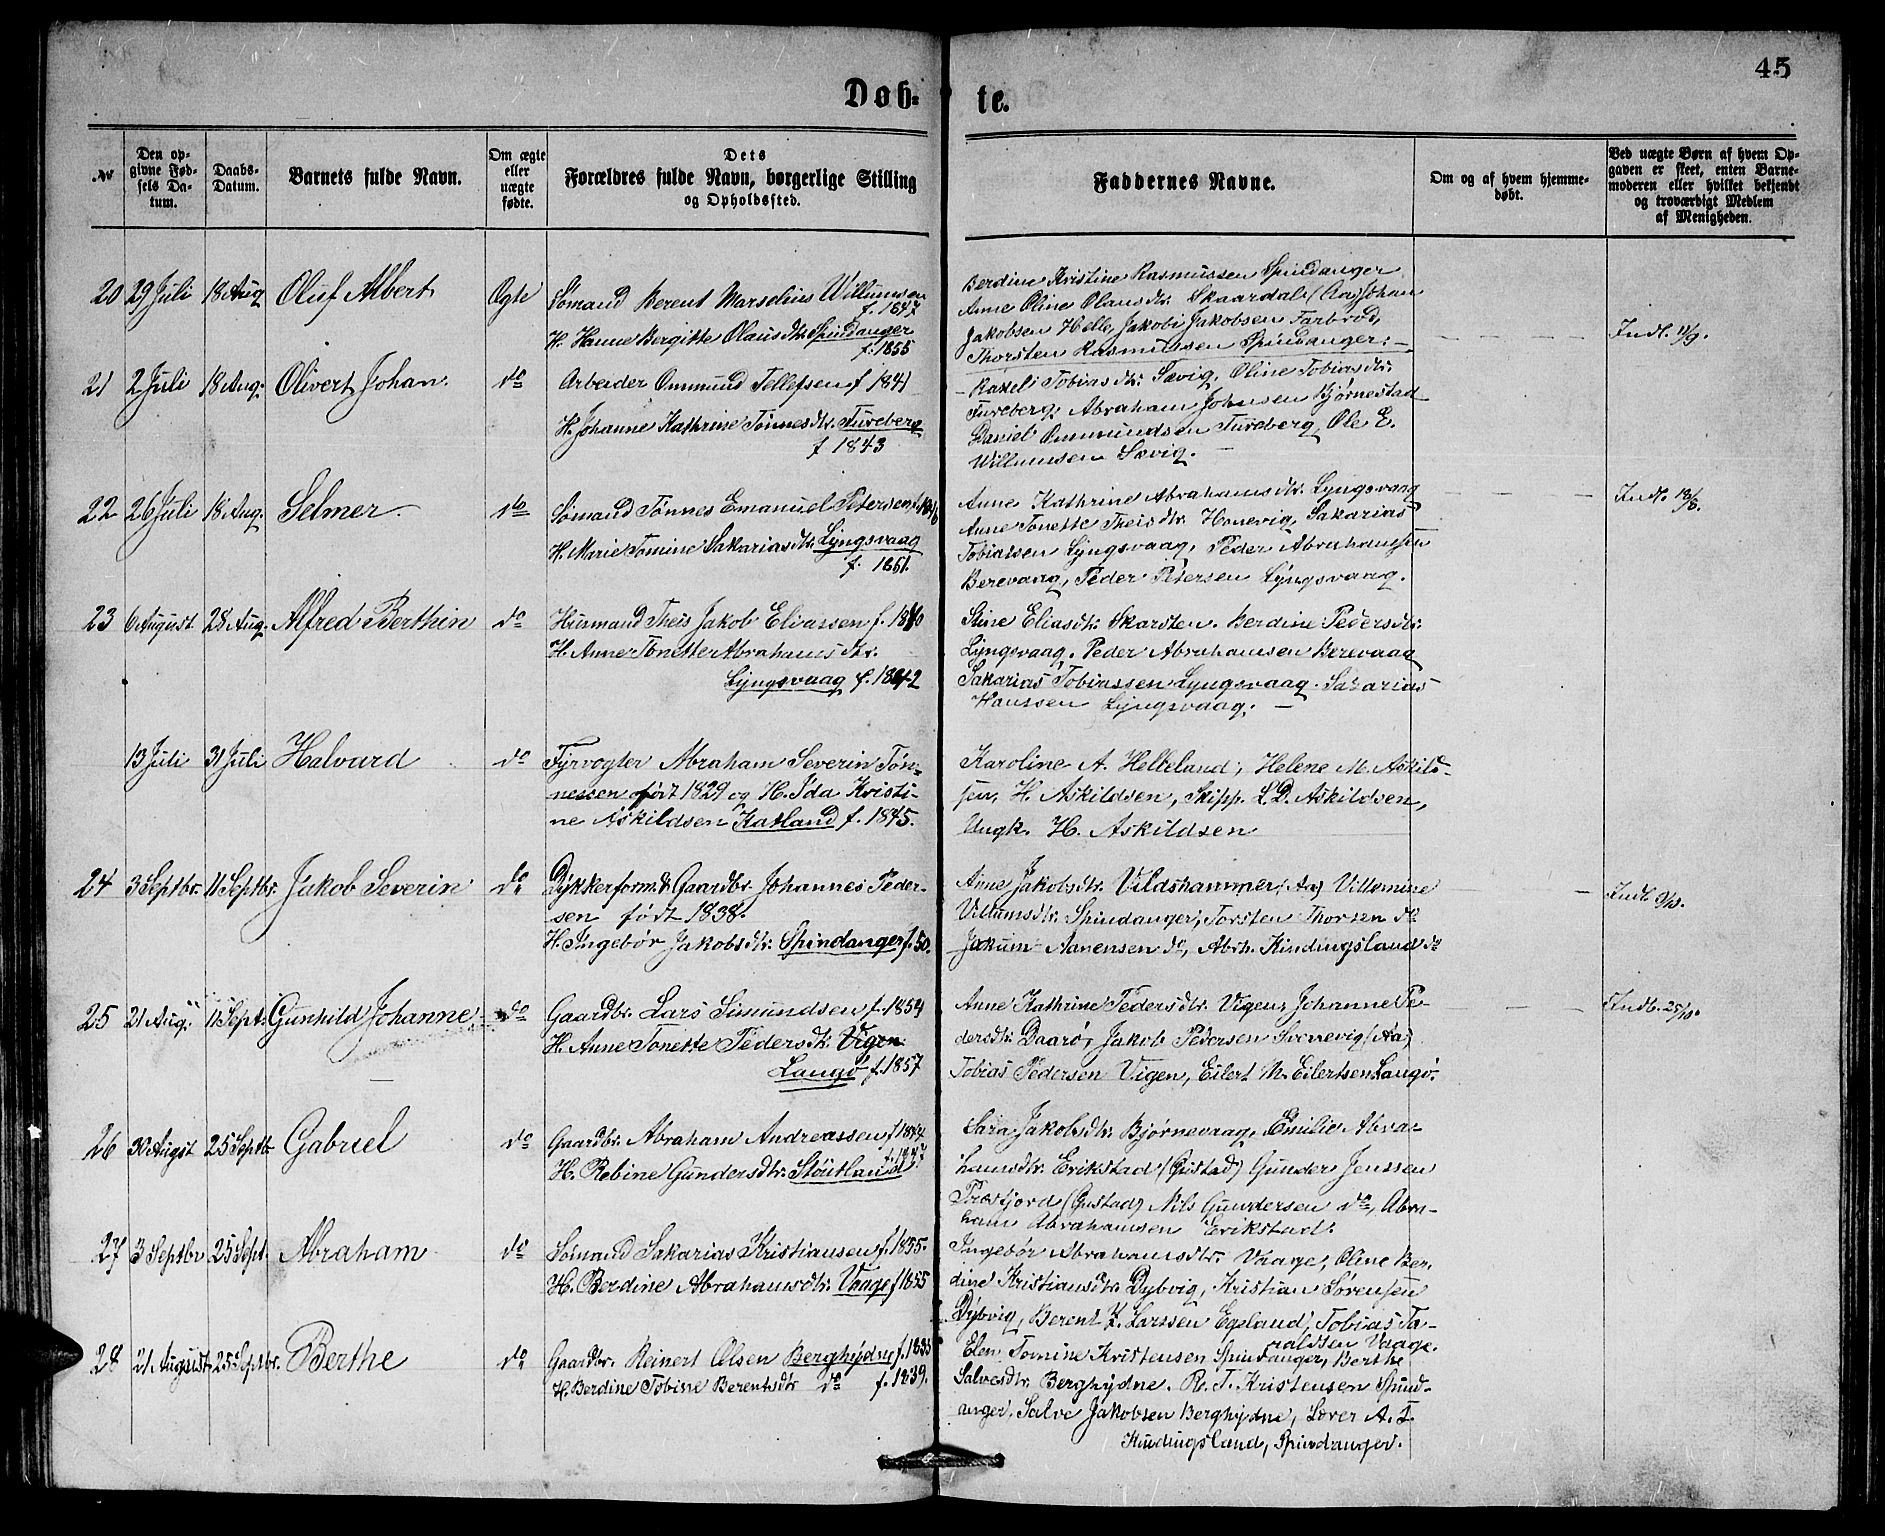 45
Døb- te.
№
Den op-
givne Fød-
sels Da-
tum.
Daabs-
Datum.
Barnets fulde Navn.
Om ægte
eller
uægte
fødte.
Dets
Forældres fulde Navn, borgerlige Stilling
og Opholdssted.
Faddernes Navne.
Om og af hvem hjemme-
døbt.
Ved uægte Børn af hvem Op-
gaven er skeet, enten Barne-
moderen eller hvilket bekjendt
og troværdigt Medlem
af Menigheden.
20 29 Juli 18 Aug Oluf Albert Ægte
Sømand Berent Marselius Willumsen
f. 1847
H. Hanne Bergitte Olausdtr. Spindanger
f. 1855
Berdine Kristine Rasmussen Spindanger
Anne Oline Olausdtr. Skaardal (Aa) Johan
Jakobsen Helle, Jakob Jakobsen Farbrod,
Thorsten Rasmussen Spindanger.
Indl. 11/9.
21 2 Juli 18 Aug. Olivert Johan. do
Arbeider Ommund Tellefsen f 1841
H. Johanne Kathrine Tønnesdtr. Tureberg
f 1843
Rakeli Tobiasdtr. Sævig, Oline Tobiasdtr.
Tureberg, Abraham Johnsen Bjørnestad
Daniel Ommundsen Tureberg, Ole E.
Willumsen Sævig.
22 26 Juli 18 Aug. Selmer. do
Sømand Tønnes Emanuel Petersen
H. Marie Tomine Sakariasdtr. Lyngsvaag
f. 1851.
Anne Kathrine Abrahamsdtr. Lyngsvaag
Anne Tonette Theisdtr. Honevig, Sakarias
Tobiassen Lyngsvaag, Peder Abrahamsen
Berevaag, Peder Petersen Lyngsvaag.
Indl. 18/8.
23 6 August 28 Aug. Alfred Berthin do
Husmand Theis Jakob Eliassen f. 1840
H. Anne Tonette Abrahamsdtr.
Lyngsvaag f. 1842
Stine Eliasdtr. Skarsten. Berdine Pedersdtr.
Lyngsvaag. Peder Abrahamsen Berevaag
Sakarias Tobiassen Lyngsvaag. Sakarias
Hanssen Lyngsvaag.
13 Juli 31 Juli Halvard do
Fyrvogter Abraham Severin Tøn-
nessen født 1829 og H. Ida Kristi-
ne Askildsen Katland f. 1845.
Karoline A. Helleland, Helene M. Askild-
sen, H. Askildsen, Skipp. L. D. Askildsen,
Ungk. H. Askildsen
24 3 Septbr. 11 Septbr. Jakob Severin do
Dykkerform. & Gaardbr. Johannes Peder-
sen født 1838.
H. Ingebør Jakobsdtr. Spindanger f. 50.
Anne Jakobsdtr. Vildshammer (Aa) Villumine
Villumsdtr. Spindanger, Torsten Thorsen do
Jakum Aanensen do, Abrh. Kindingsland do
Indl. 9/10.
25 21 Aug. 11 Sept. Gunhild Johanne do
Gaardbr. Lars Simundsen f. 1854
H. Anne Tonette Pedersdtr. Vigen
Langø f. 1857
Anne Kathrine Pedersdtr. Vigen, Johanne Pe-
dersdtr. Daarø, Jakob Pedersen Svenevig (Aa)
Tobias Pedersen Vigen, Eilert M. Eilertsen Langø.
Indb. 25/10.
26 30 Augst 25 Septb Gabriel do
Gaardbr. Abraham Andreassen f 1844
H. Rebine Gundersdtr. Støitland
Sara Jakobsdtr. Bjørnevaag, Emilie Abra-
hamsdtr. Erikstad (Gustad) Gunder Jenssen
Træfjord (Gustad) Nils Gundersen do, Abra-
ham Abrahamsen Erikstad.
27 3 Septbr 25 Sept. Abraham do
Sømand Sakarias Kristiansen f. 1855.
H. Berdine Abrahamsdtr. Vaage f 1855
Ingebør Abrahamsdtr. Vaage, Oline Ber-
dine Kristiansdtr. Dybvig, Kristian Sørensen
Dybvig, Berent Z. Larssen Egeland, Tobias Ta-
raldsen Vaage.
28 21 August 25 Septbr. Berthe do
Gaardbr. Reinert Olsen Berghydne f. 1835
H. Berdine Tobine Berentsdtr do f. 1839.
Elen Tomine Kristensen Spindanger, Berthe
Salvesdtr. Berghydne. R. T. Kristensen Spind-
anger, Salve Jakobsen Berghydne, Lærer A. T.
Kindingsland, Spindanger.